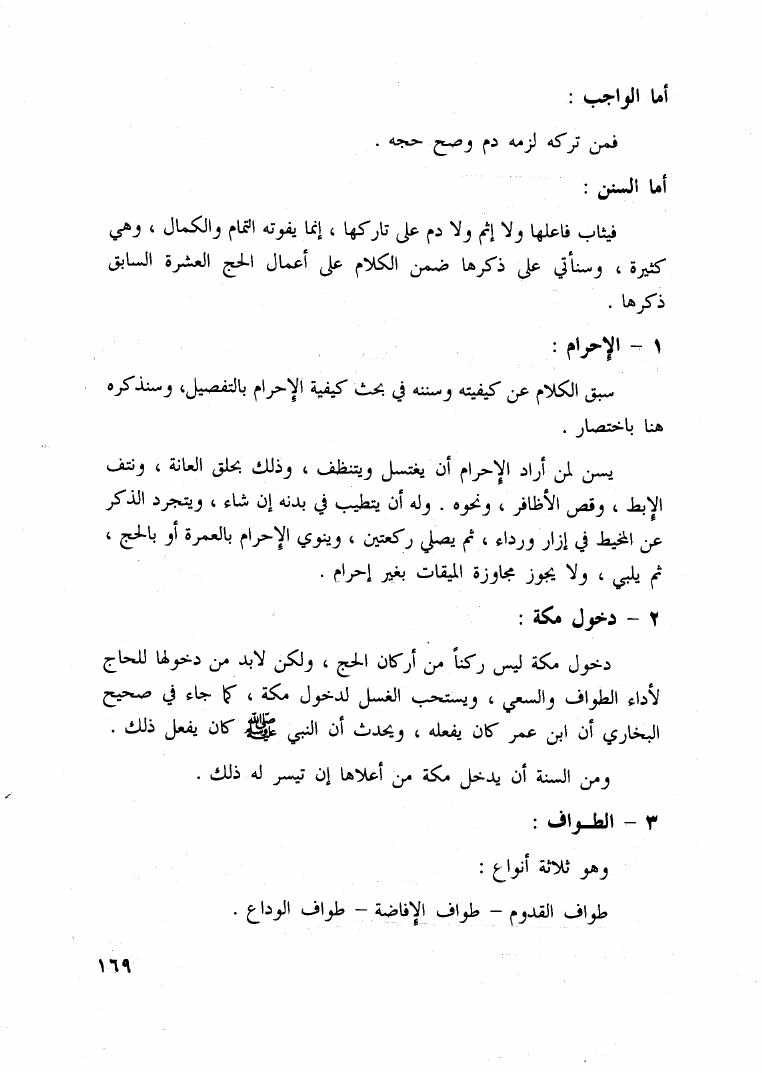 أما الواجب :
فمن تركه لزمه دم وصح حجه .
أما السنن :
فيثاب فاعلها ولا إثم ولا دم على تاركها ، إنما يفوته التمام والكمال ، وهي
كثيرة ، وسنأتي على ذكرها ضمن الكلام على أعمال الحج العشرة السابق
ذكرها .
١ - الإحرام :
سبق الكلام عن كيفيته وسننه في بحث كيفية الإحرام بالتفصيل، وسنذكره
هنا باختصار .
يسن لمن أراد الإحرام أن يغتسل ويتنظف ، وذلك بحلق العانة ، ونتف
الإبط ، وقص الأظافر ، ونحوه . وله أن يتطيب في بدنه إن شاء ، ويتجرد الذكر
عن المخيط في إزار ورداء ، ثم يصلي ركعتين ، وينوي الإحرام بالعمرة أو بالحج ،
ثم يلبي ، ولا يجوز مجاوزة الميقات بغير إحرام .
٢ - دخول مكة :
دخول مكة ليس ركناً من أركان الحج ، ولكن لابد من دخولها للحاج
لأداء الطواف والسعي ، ويستحب الغسل لدخول مكة ، كما جاء في صحيح
البخاري أن ابن عمر كان يفعله ، ويحدث أن النبي ﷺ كان يفعل ذلك .
ومن السنة أن يدخل مكة من أعلاها إن تيسر له ذلك .
٣ - الطـواف :
وهو ثلاثة أنواع :
طواف القدوم - طواف الإفاضة - طواف الوداع .
١٦٩